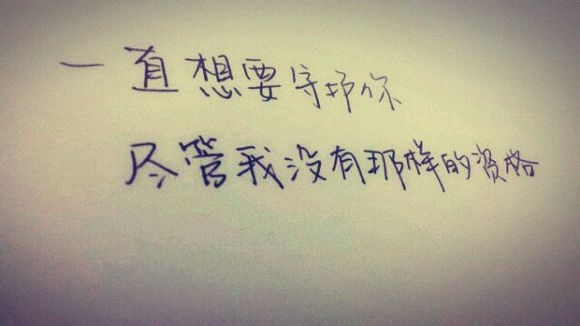 一直想要守护你
尽管我没有那样的资格